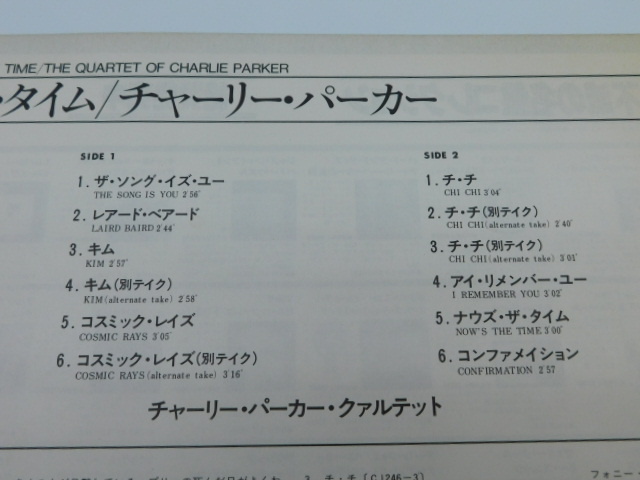 TIME/THE QUARTET OF CHARLIE PARKER
・タイム/チャーリー・パーカー
SIDE 1
1. ザ・ソング・イズ・ユー
THE SONG IS YOU 2′56″
2. レアード・ベアード
LAIRD BAIRD 2′44″
3. キム
KIM 2′57″
4. キム(別テイク)
KIM(alternate take) 2′58″
5. コスミック・レイズ
COSMIC RAYS 3′05″
6. コスミック・レイズ(別テイク)
COSMIC RAYS(alternate take) 3′16″
SIDE 2
1. チ・チ
CHI CHI 3′04″
2. チ・チ(別テイク)
CHI CHI(alternate take) 2′40″
3. チ・チ(別テイク)
CHI CHI(alternate take) 3′01″
4. アイ・リメンバー・ユー
I REMEMBER YOU 3′02″
5. ナウズ・ザ・タイム
NOW'S THE TIME 3′00″
6. コンファメイション
CONFIRMATION 2′57
チャーリー・パーカー・クァルテット
3. チ・チ(C1246-3)
フォニー・